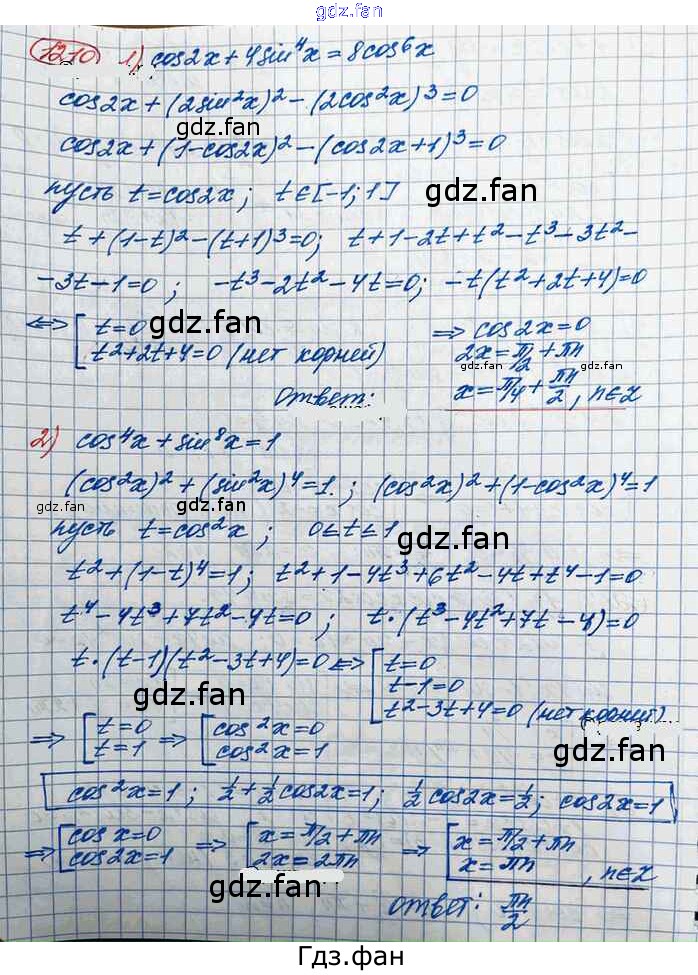 gdz.fan
1210 1) cos2x + 4sin⁴x = 8cos⁶x
cos2x + (2sin²x)² - (2cos²x)³ = 0
gdz.fan
cos2x + (1-cos2x)² - (cos2x+1)³ = 0
пусть t = cos2x; t∈[-1; 1]
gdz.fan
t + (1-t)² - (t+1)³ = 0; t + 1 - 2t + t² - t³ - 3t² -
- 3t - 1 = 0; -t³ - 2t² - 4t = 0; -t(t² + 2t + 4) = 0
gdz.fan
⇔ [ t = 0 ⇒ cos2x = 0
t² + 2t + 4 = 0 (нет корней) 2x = π/2 + πn
gdz.fan gdz.fan
ответ: x = π/4 + πn/2, n∈Z
2) cos⁴x + sin⁸x = 1
(cos²x)² + (sin²x)⁴ = 1.; (cos²x)² + (1-cos²x)⁴ = 1
gdz.fan gdz.fan
пусть t = cos²x; 0 ≤ t ≤ 1
gdz.fan
t² + (1-t)⁴ = 1; t² + 1 - 4t³ + 6t² - 4t + t⁴ - 1 = 0
t⁴ - 4t³ + 7t² - 4t = 0; t·(t³ - 4t² + 7t - 4) = 0
gdz.fan
t·(t-1)(t² - 3t + 4) = 0 ⇔ [ t = 0
t - 1 = 0
t² - 3t + 4 = 0 (нет корней)
⇒ [ t = 0 ⇒ [ cos²x = 0
t = 1 cos²x = 1
gdz.fan
cos²x = 1; ½ + ½cos2x = 1; ½cos2x = ½; cos2x = 1
⇒ [ cosx = 0 ⇒ [ x = π/2 + πn ⇒ [ x = π/2 + πn
cos2x = 1 2x = 2πn x = πn, n∈Z
gdz.fan
ответ: πn/2
Гдз.фан